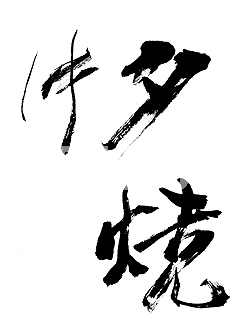 夕焼
け